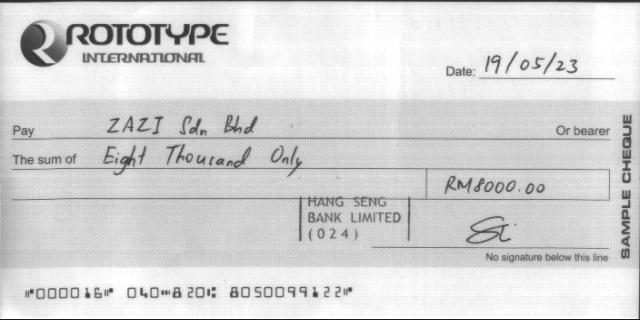 ROTOTYPE
INTERNATIONAL
Date: 19/05/23
Pay ZAZI Sdn Bhd Or bearer
The sum of Eight Thousand Only
RM8000.00
HANG SENG
BANK LIMITED
(024)
No signature below this line
SAMPLE CHEQUE
⑈000016⑈ 040⑉820⑆ 8050099122⑈